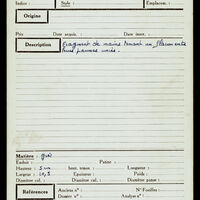 Indice : Style : Emplacem. :
Origine
Prix Date acquis. : Date invent. :
Description Fragment de mains tenant un flacon entre
leurs paumes unies.
Matière : grès
Enduit : Patine :
Hauteur : 5 cm haut. tenon : Longueur :
Largeur : 10,5 Epaisseur : Poids :
Diamètre col. : Diamètre panse :
Références Anciens nos : N° Fouilles :
Dossier n° : Analyse n° :